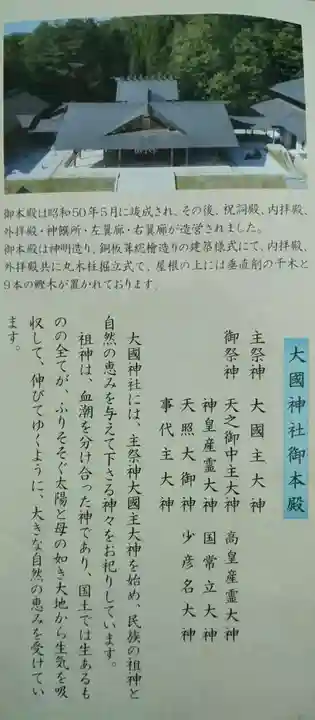 御本殿は昭和50年5月に竣成され、その後、祝詞殿、内拝殿、
外拝殿・神饌所・左翼廊・右翼廊が造営されました。
御本殿は神明造り、銅板葺総檜造りの建築様式にて、内拝殿、
外拝殿共に丸木柱掘立式で、屋根の上には垂直削の千木と
9本の鰹木が置かれております。
大國神社御本殿
主祭神 大國主大神
御祭神 天之御中主大神 高皇産霊大神
神皇産霊大神 国常立大神
天照大御神 少彦名大神
事代主大神
大國神社には、主祭神大國主大神を始め、民族の祖神と
自然の恵みを与えて下さる神々をお祀りしています。
祖神は、血潮を分け合った神であり、国土では生あるも
のの全てが、ふりそそぐ太陽と母の如き大地から生気を吸
収して、伸びてゆくように、大きな自然の恵みを受けてい
ます。